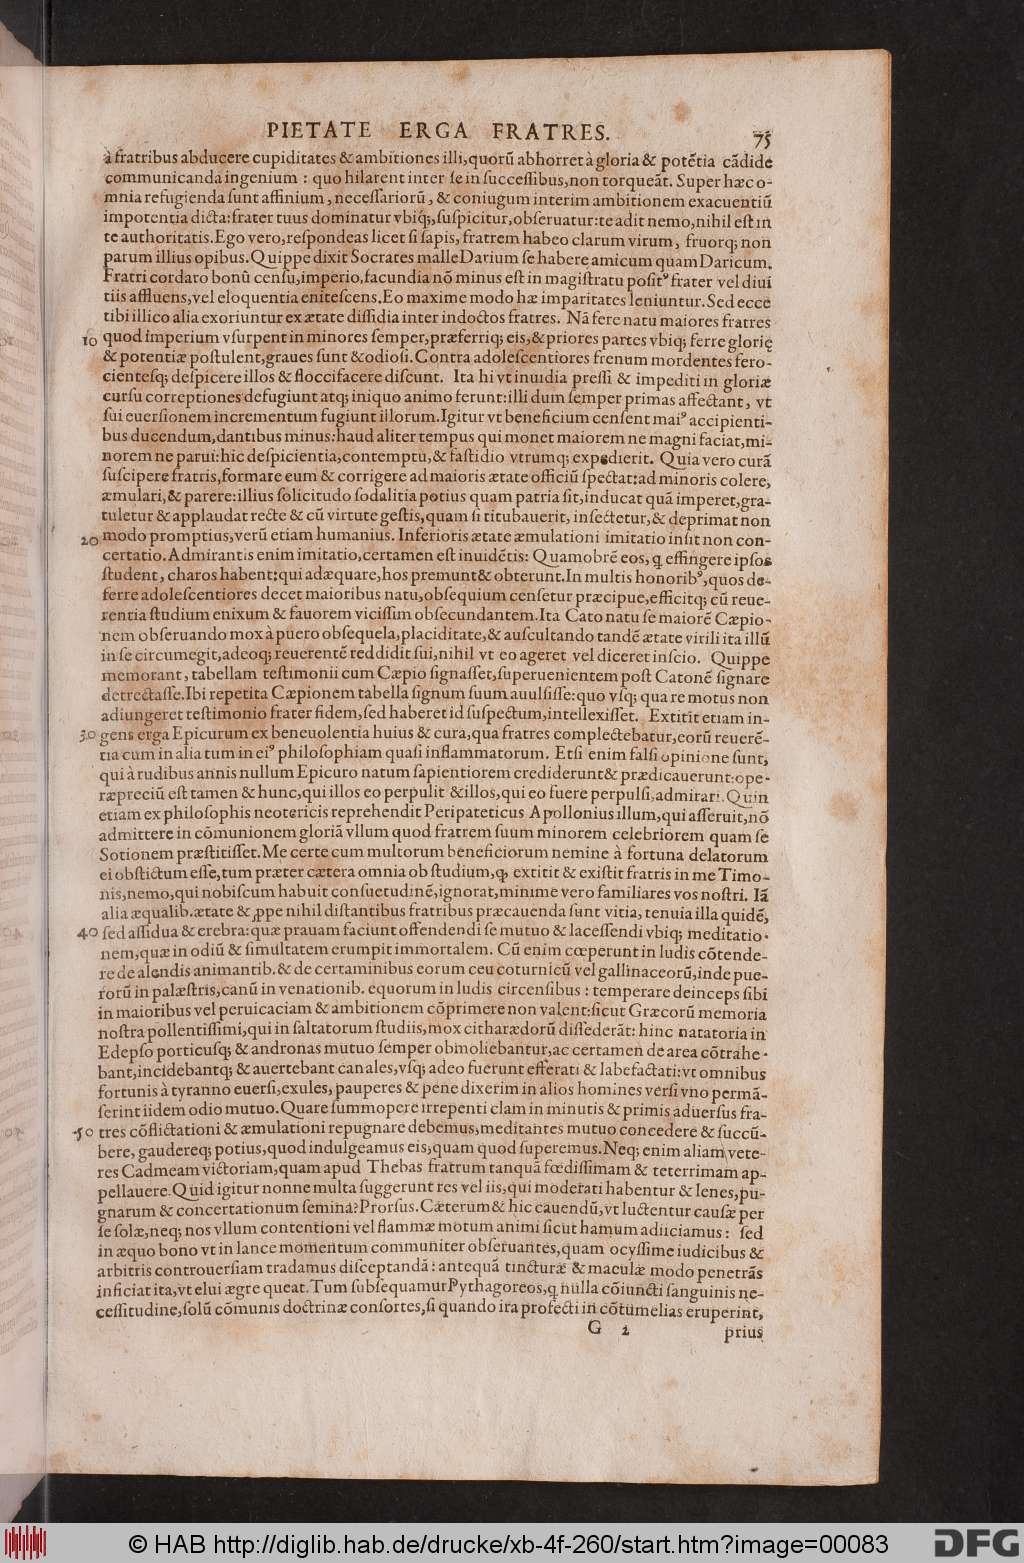 PIETATE ERGA FRATRES. 75
à fratribus abducere cupiditates & ambitiones illi, quorũ abhorret à gloria & potẽtia cãdide
communicanda ingenium : quo hilarent inter ſe in ſucceſſibus, non torqueãt. Super hæc o-
mnia refugienda ſunt affinium, neceſſariorũ, & coniugum interim ambitionem exacuentiũ
impotentia dicta: frater tuus dominatur vbiq;, ſuſpicitur, obſeruatur: te adit nemo, nihil eſt in
te authoritatis. Ego vero, reſpondeas licet ſi ſapis, fratrem habeo clarum virum, fruorq; non
parum illius opibus. Quippe dixit Socrates malle Darium ſe habere amicum quam Daricum.
Fratri cordato bonũ cenſu, imperio, facundia nõ minus eſt in magiſtratu poſitꝰ frater vel diui
tiis affluens, vel eloquentia eniteſcens. Eo maxime modo hæ imparitates leniuntur. Sed ecce
tibi illico alia exoriuntur ex ætate diſſidia inter indoctos fratres. Nã fere natu maiores fratres
10 quod imperium vſurpent in minores ſemper, præferriq; eis, & priores partes vbiq; ferre glorię
& potentiæ poſtulent, graues ſunt & odioſi. Contra adoleſcentiores frenum mordentes fero-
cienteſq; deſpicere illos & floccifacere diſcunt. Ita hi vt inuidia preſſi & impediti in gloriæ
curſu correptiones defugiunt atq; iniquo animo ferunt: illi dum ſemper primas affectant, vt
ſui euerſionem incrementum fugiunt illorum. Igitur vt beneficium cenſent maiꝰ accipienti-
bus ducendum, dantibus minus: haud aliter tempus qui monet maiorem ne magni faciat, mi-
norem ne parui: hic deſpicientia, contemptu, & faſtidio vtrumq; expedierit. Quia vero curã
ſuſcipere fratris, formare eum & corrigere ad maioris ætate officiũ ſpectat: ad minoris colere,
æmulari, & parere: illius ſolicitudo ſodalitia potius quam patria ſit, inducat quã imperet, gra-
tuletur & applaudat recte & cũ virtute geſtis, quam ſi titubauerit, inſectetur, & deprimat non
20 modo promptius, verũ etiam humanius. Inferioris ætate æmulationi imitatio inſit non con-
certatio. Admirantis enim imitatio, certamen eſt inuidẽtis: Quamobrẽ eos, q effingere ipſos
ſtudent, charos habent: qui adæquare, hos premunt & obterunt. In multis honoribꝰ, quos de-
ferre adoleſcentiores decet maioribus natu, obſequium cenſetur præcipue, efficitq; cũ reue-
rentia ſtudium enixum & fauorem viciſſim obſecundantem. Ita Cato natu ſe maiorẽ Cæpio-
nem obſeruando mox à puero obſequela, placiditate, & auſcultando tandẽ ætate virili ita illũ
in ſe circumegit, adeoq; reuerentẽ reddidit ſui, nihil vt eo ageret vel diceret inſcio. Quippe
memorant, tabellam teſtimonii cum Cæpio ſignaſſet, ſuperuenientem poſt Catonẽ ſignare
detrectaſſe. Ibi repetita Cæpionem tabella ſignum ſuum auulſiſſe: quo vſq; qua re motus non
adiungeret teſtimonio frater fidem, ſed haberet id ſuſpectum, intellexiſſet. Extitit etiam in-
30 gens erga Epicurum ex beneuolentia huius & cura, qua fratres complectebatur, eorũ reuerẽ-
tia cum in alia tum in eiꝰ philoſophiam quaſi inflammatorum. Etſi enim falſi opinione ſunt,
qui à rudibus annis nullum Epicuro natum ſapientiorem crediderunt & prædicauerunt: ope-
ræpreciũ eſt tamen & hunc, qui illos eo perpulit & illos, qui eo fuere perpulſi, admirari. Quin
etiam ex philoſophis neotericis reprehendit Peripateticus Apollonius illum, qui aſſeruit, nõ
admittere in cõmunionem gloriã vllum quod fratrem ſuum minorem celebriorem quam ſe
Sotionem præſtitiſſet. Me certe cum multorum beneficiorum nemine à fortuna delatorum
ei obſtictum eſſe, tum præter cætera omnia ob ſtudium, q extitit & exiſtit fratris in me Timo-
nis, nemo, qui nobiſcum habuit conſuetudinẽ, ignorat, minime vero familiares vos noſtri. Iã
alia æqualib. ætate & ꝓppe nihil diſtantibus fratribus præcauenda ſunt vitia, tenuia illa quidẽ,
40 ſed aſſidua & crebra: quæ prauam faciunt offendendi ſe mutuo & laceſſendi vbiq; meditatio-
nem, quæ in odiũ & ſimultatem erumpit immortalem. Cũ enim cœperunt in ludis cõtende-
re de alendis animantib. & de certaminibus eorum ceu coturnicũ vel gallinaceorũ, inde pue-
rorũ in palæſtris, canũ in venationib. equorum in ludis circenſibus : temperare deinceps ſibi
in maioribus vel peruicaciam & ambitionem cõprimere non valent: ſicut Græcorũ memoria
noſtra pollentiſſimi, qui in ſaltatorum ſtudiis, mox citharædorũ diſſederãt: hinc natatoria in
Edepſo porticuſq; & andronas mutuo ſemper obmoliebantur, ac certamen de area cõtrahe-
bant, incidebantq; & auertebant canales, vſq; adeo fuerunt efferati & labefactati: vt omnibus
fortunis à tyranno euerſi, exules, pauperes & pene dixerim in alios homines verſi vno permã-
ſerint iidem odio mutuo. Quare ſummopere irrepenti clam in minutis & primis aduerſus fra-
50 tres cõflictationi & æmulationi repugnare debemus, meditantes mutuo concedere & ſuccũ-
bere, gaudereq; potius, quod indulgeamus eis, quam quod ſuperemus. Neq; enim aliam vete-
res Cadmeam victoriam, quam apud Thebas fratrum tanquã fœdiſſimam & teterrimam ap-
pellauere. Quid igitur nonne multa ſuggerunt res vel iis, qui moderati habentur & lenes, pu-
gnarum & concertationum ſemina? Prorſus. Cæterum & hic cauendũ, vt luctentur cauſæ per
ſe ſolæ, neq; nos vllum contentioni vel flammæ motum animi ſicut hamum adiiciamus : ſed
in æquo bono vt in lance momentum communiter obſeruantes, quam ocyſſime iudicibus &
arbitris controuerſiam tradamus diſceptandã : antequã tincturæ & maculæ modo penetrãs
inficiat ita, vt elui ægre queat. Tum ſubſequamur Pythagoreos, q nulla cõiuncti ſanguinis ne-
ceſſitudine, ſolũ cõmunis doctrinæ conſortes, ſi quando ira profecti in cõtumelias eruperint,
G 2 prius
© HAB http://diglib.hab.de/drucke/xb-4f-260/start.htm?image=00083 DFG